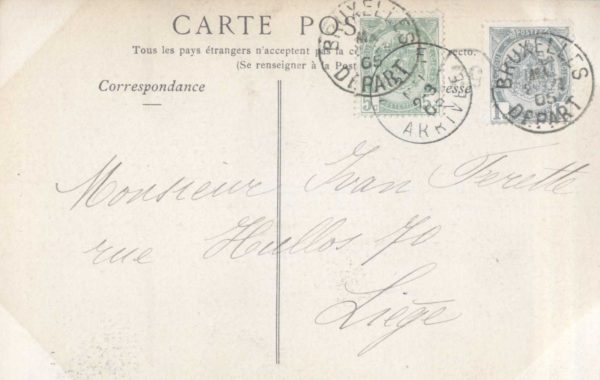 CARTE POS
Tous les pays étrangers n'acceptent pas la co recto.
(Se renseigner à la Post
Correspondance
esse
BRUXELLES
MA
05
DÉPART
5
ARRIVÉE
23
05
BRUXELLES
05
DÉPART
1
Monsieur Ivan Ferette
rue Hullos 70
Liège